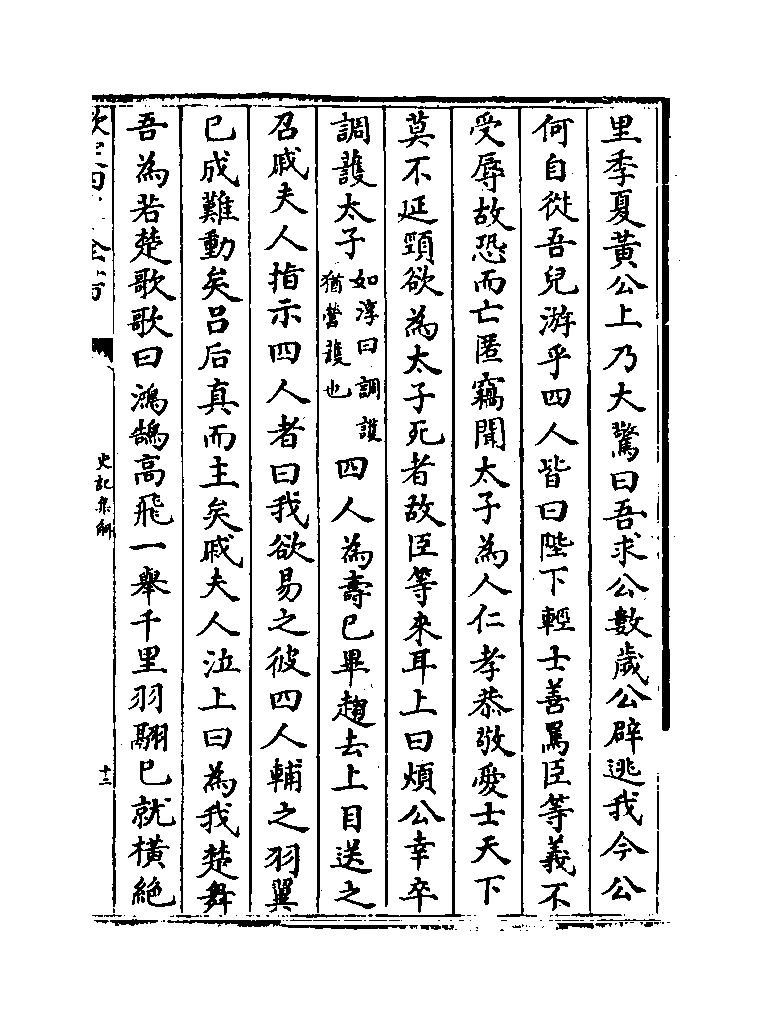 里季夏黃公上乃大驚曰吾求公數歲公辟逃我今公
何自從吾兒游乎四人皆曰陛下輕士善罵臣等義不
受辱故恐而亡匿竊聞太子為人仁孝恭敬愛士天下
莫不延頸欲為太子死者故臣等來耳上曰煩公幸卒
調護太子
如淳曰調護
猶營護也
四人為壽已畢趨去上目送之
召戚夫人指示四人者曰我欲易之彼四人輔之羽翼
已成難動矣吕后真而主矣戚夫人泣上曰為我楚舞
吾為若楚歌歌曰鴻鵠高飛一舉千里羽翮已就橫絶
史記集解
十二